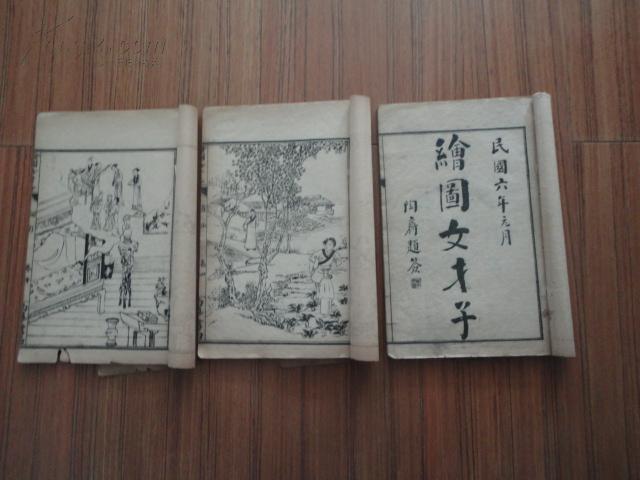 民國六年元月
繪圖女才子
陶齋題签